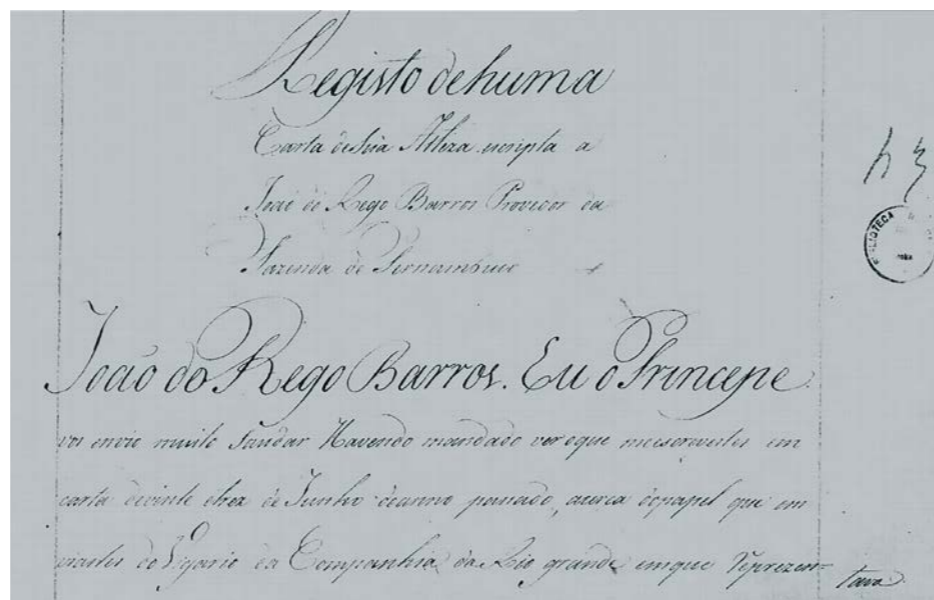 Registo de huma
Carta de Sua Alteza escripta a
João do Rego Barros Provedor da
Fazenda de Pernambuco
João do Rego Barros. Eu o Princepe
vos envio muito Saudar Havendo mandado ver oque me escrevestes em
carta de vinte etrez de Junho do anno passado, acerca do papel que em
viastes do Vigario da Companhia do Rio grande, em que reprezen=
tava
BIBLIOTECA